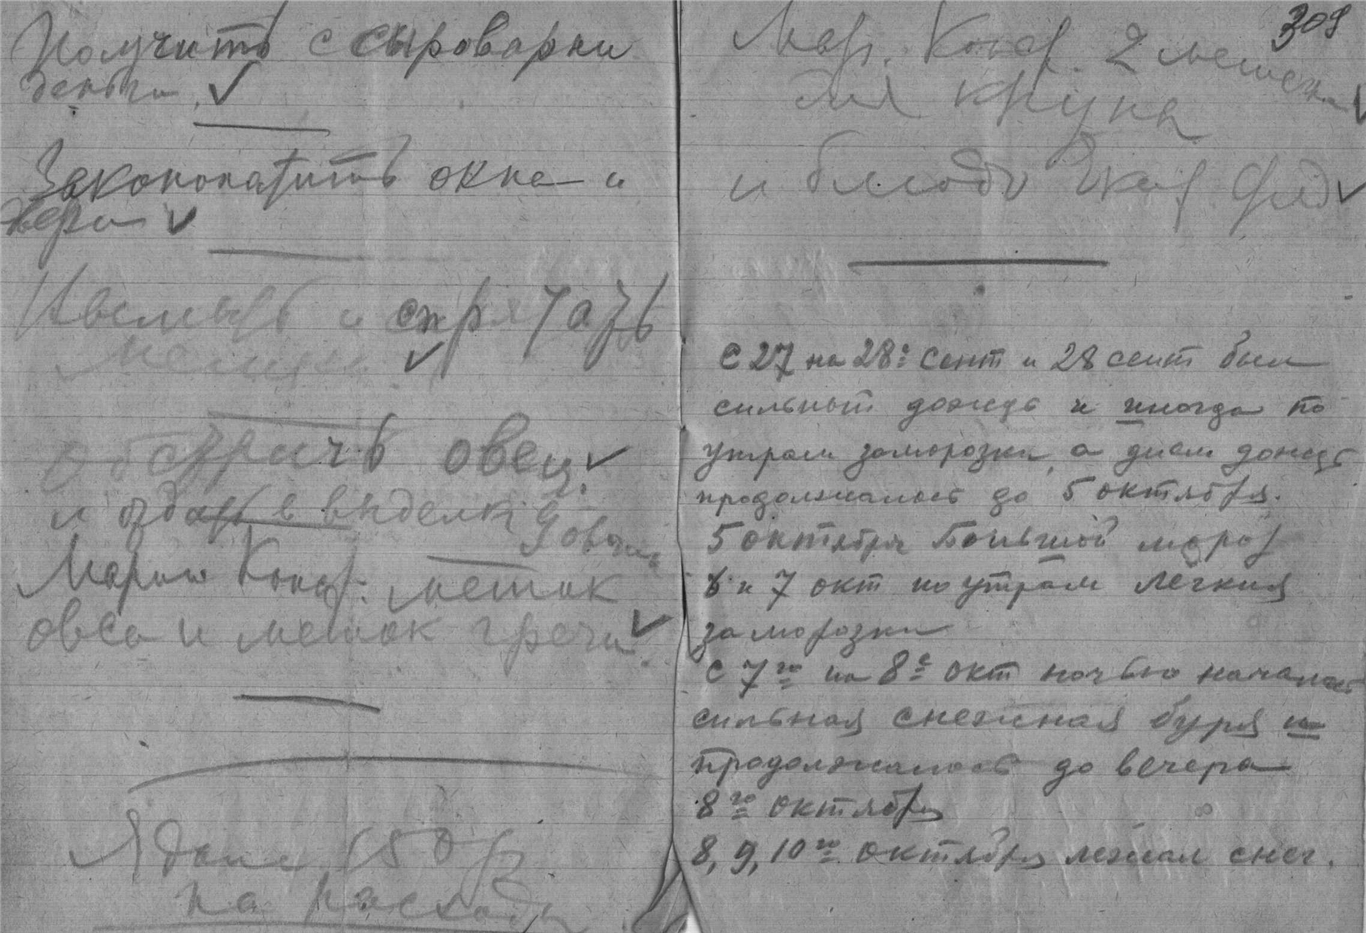 Получить с сыроварни
деньги
Законопатить окна и
двери
и спрятать
Обстричь овец
и отдать в выделку 9 овчин
Марии Конд. мешок
овса и мешок гречи
Я дала 150 р
на расходы
309
Мар. Конд. 2 мешка
для крупы
и блюдо
С 27 на 28е сент и 28 сент был
сильный дождь и иногда по
утрам заморозки, а днем дождь
продолжалось до 5 октября.
5 октября большой мороз
6 и 7 окт по утрам легкия
заморозки
С 7го на 8е окт ночью началась
сильная снежная буря и
продолжалась до вечера
8го октября
8, 9, 10го октября лежал снег.